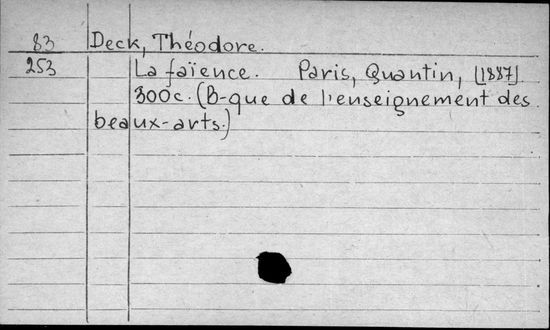 83 Deck, Théodore.
253 La faïence. Paris, Quantin, [1887]
300c. (B-que de l'enseignement des
beaux-arts.)